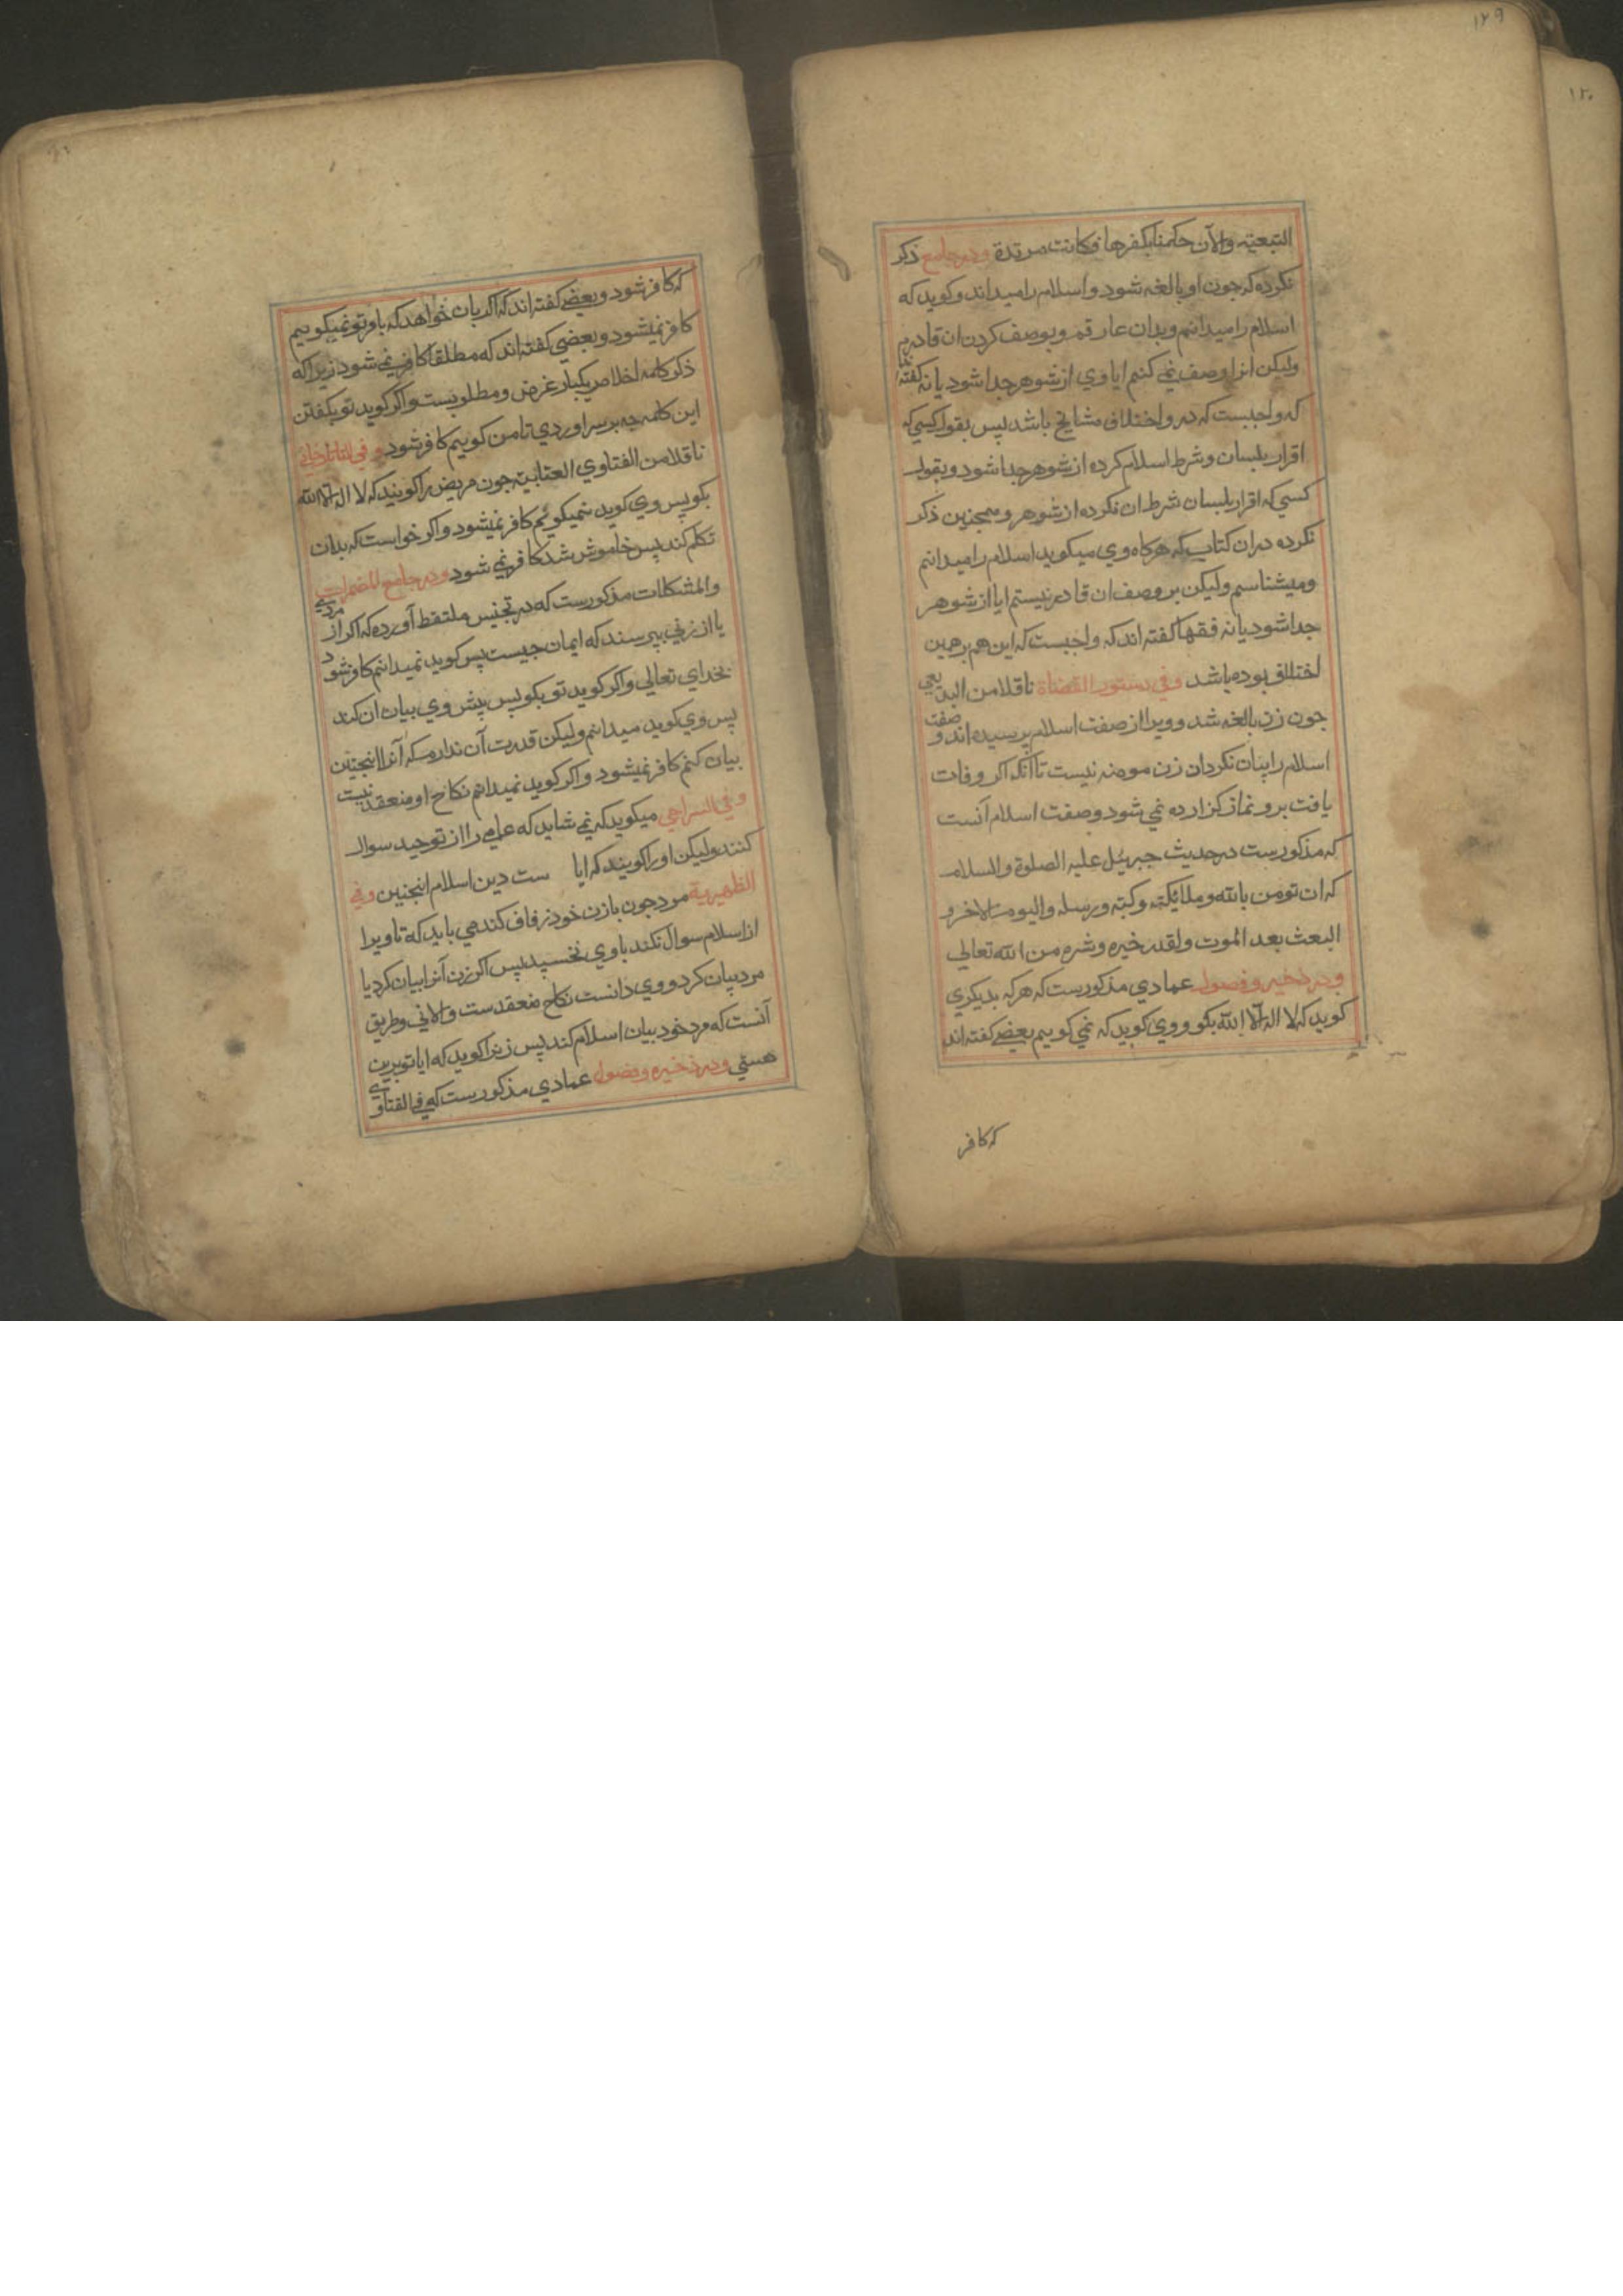 ۱۲۹
۱۳۰
التبعیته والآن حکمنا بکفرها فکانت مرتدة ودر جامع ذکر
نکرده که جون او بالغه شود و اسلام را میداند و کوید که
اسلام را میدانم و بدان عارفم و بوصف کردن ان قادرم
ولیکن انرا وصف نمی کنم ایا وي از شوهر جدا شود یا نه گفته‌اند
که واجبست که در و اختلاف مشایخ باشد پس بقول کسی که
اقرار بلسان و شرط اسلام کرده از شوهر جدا شود و بقول
کسي که اقرار بلسان شرط ان نکرده از شوهر و همجنین ذکر
نکرده دران کتاب که هرکاه وي میکوید اسلام را میدانم
و میشناسم ولیکن بر وصف ان قادر نیستم ایا از شوهر
جدا شود یا نه فقها کفته اند که واجبست که این هم بر همین
اختلاف بوده باشد وفي دستور القضاة ناقلا من البدیعی
جون زن بالغه شد و ویرا از صفت اسلام پرسیده اند و صفت
اسلام را بیان نکرد ان زن مومنه نیست تا آنکه اکر وفات
یافت بر و نماز کزارده نمی شود و صفت اسلام آنست
که مذکورست در حدیث جبرئیل علیه الصلوة والسلام
که ان تومن بالله و ملایکته و کتبه و رسله والیوم الاخر و
البعث بعد الموت والقدر خیره وشره من الله تعالی
ودر ذخیره و فصول عمادي مذکورست که هر که بدیکری
کوید که لا اله الا الله بکو و وي کوید که نمي کویم بعضے کفته اند
که کافر
که کافر شود و بعضے کفته اند که اکر بان خواهد که بامر تو نمیکویم
کافر نمیشود و بعضي کفته اند که مطلقا کافر نمی شود زیرا که
ذکر کلمه اخلاص یکبار غرض و مطلوبست و اکر کوید تو بکفتن
این کلمه چه بر سر اوردي تا من کویم کافر شود و في التاتارخاني
ناقلا من الفتاوي العتابیة جون مریض را کویند که لا اله الا الله
بکو پس وي کوید نمیکویم کافر نمیشود و اکر خواست که بدان
تکلم کند پس خاموش شد کافر نمی شود ودر جامع المضمرات
والمشکلات مذکورست که در تجنیس ملتقط آورده که اکر از مردی
یا از زني بپرسند که ایمان جیست پس کوید نمیدانم کافر شود
بخداي تعالی و اکر کوید تو بکو پس پیش وي بیان ان کند
پس وي کوید میدانم ولیکن قدرت آن ندارم که آنرا اینجنین
بیان کنم کافر نمیشود و اکر کوید نمیدانم نکاح او منعقد نیست
و في السراجي میکوید که نمی شاید که عامی را از توحید سوال
کنند ولیکن او را کویند که ایا ست دین اسلام اینجنین وفي
الظهیریة مرد جون با زن خود زفاف کند می باید که تا ویرا
از اسلام سوال نکند با وي نخسپد پس اکر زن آنرا بیان کرد یا
مرد بیان کرد و وي دانست نکاح منعقدست والا ني و طریق
آنست که مرد خود بیان اسلام کند پس زنرا کوید که ایا تو برین
هستي ودر ذخیره و فصول عمادي مذکورست که في الفتاوی